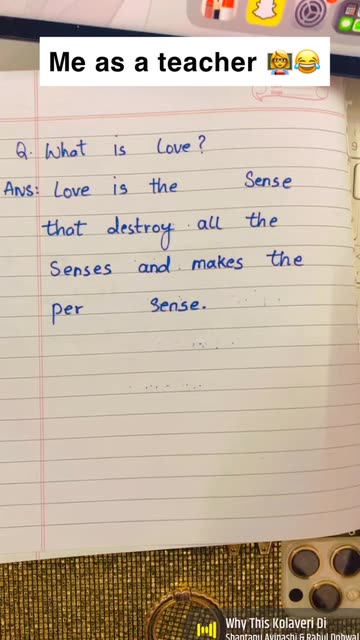 Me as a teacher 👩‍🏫😂
Q. What is Love?
Ans: Love is the Sense
that destroy all the
Senses and makes the
per sense.
Why This Kolaveri Di
Shantanu Avinashi & Rahul